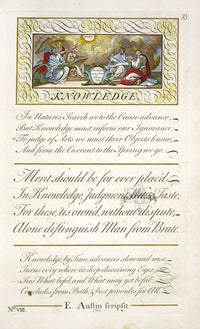 33
KNOWLEDGE
In Nature's Search we to the Cause advance,
But Knowledge must inform our Ignorance
To judge of Acts we must their Objects know,
And from the Current to the Spring we go.
Merit should be for ever plac'd
In Knowledge, Judgment, Taste;
For these, its own'd, without dispute,
Alone distinguish Man from Brute.
Knowledge by Time, advances slow and wise,
Turns every where its deep discerning Eyes;
Sees What befel, and What may yet befal,
Concludes from Both, & best provides for All.
No. VIII.
E. Austin scripsit.